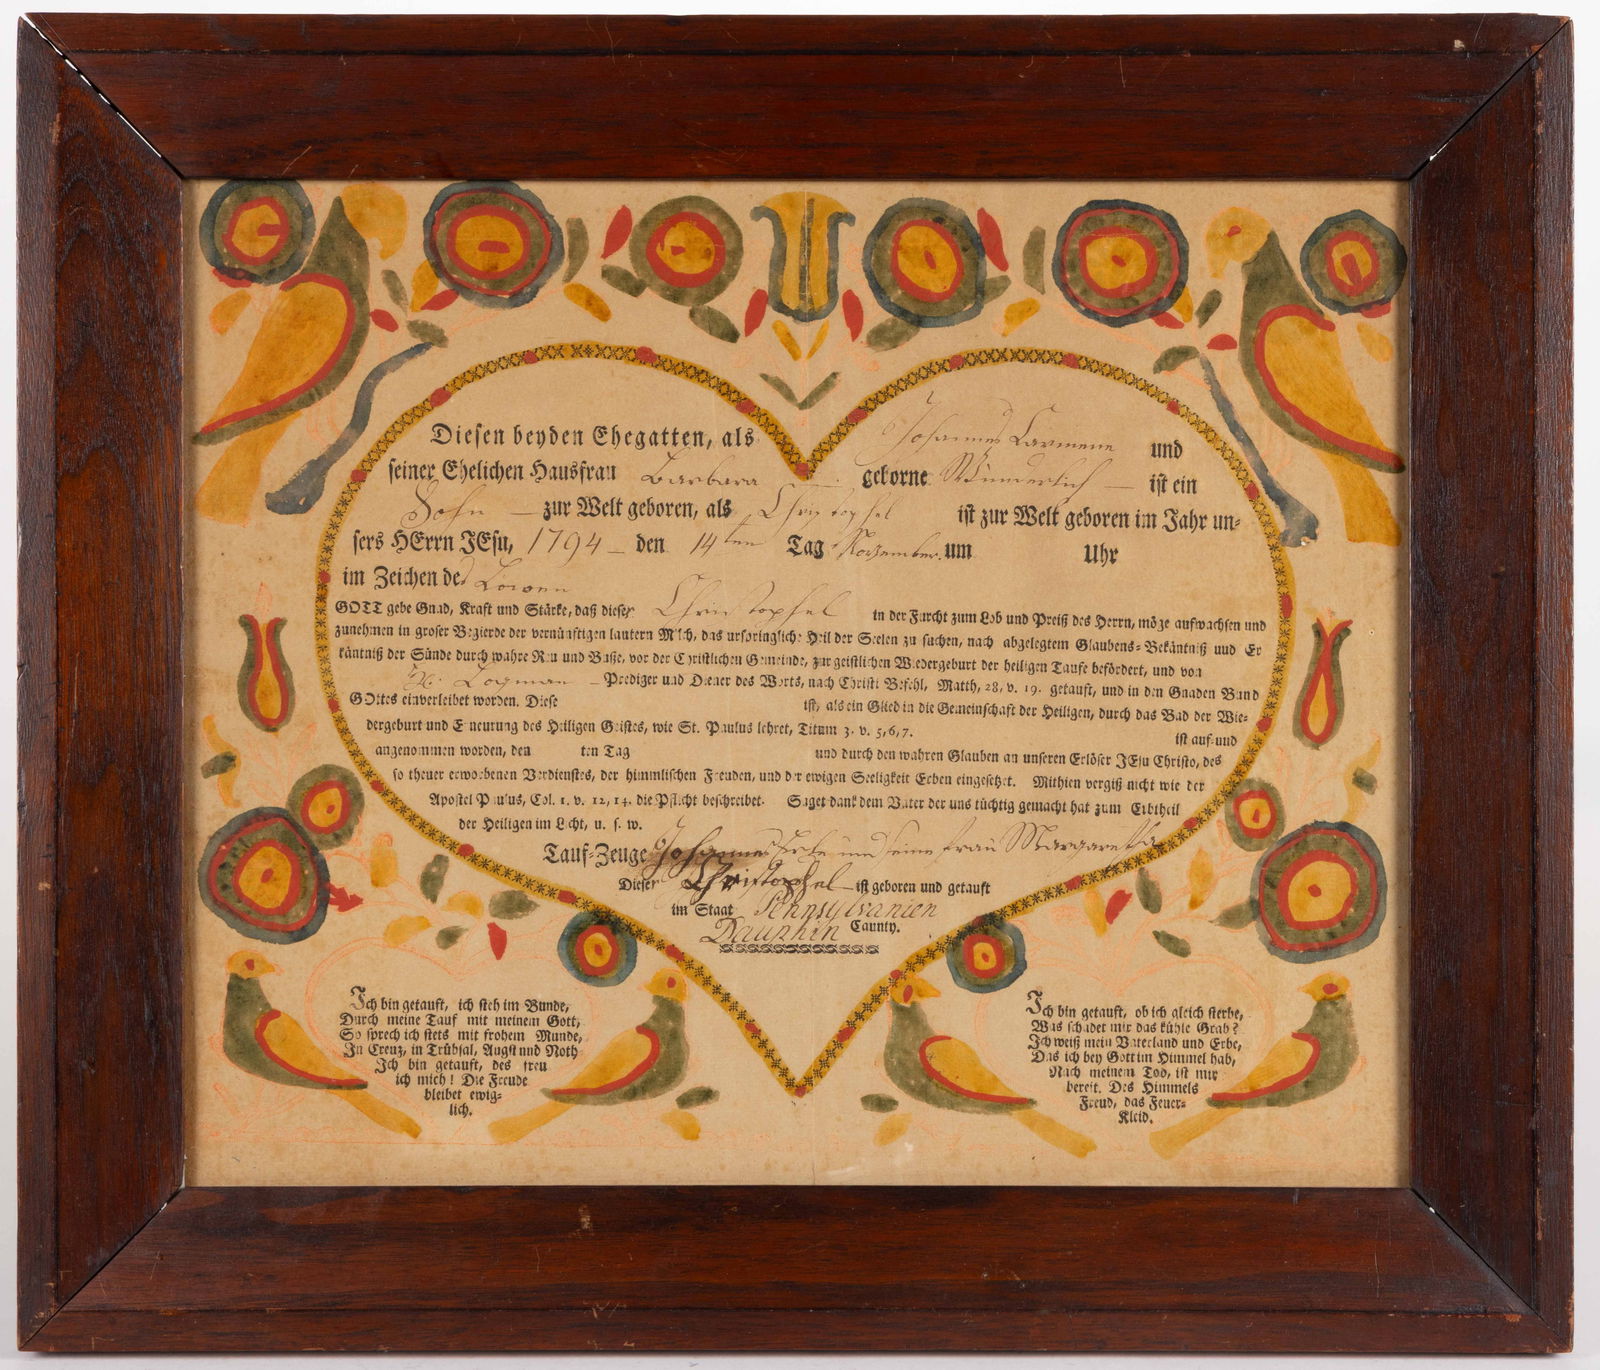 Diesen beyden Ehegatten, als Johannes Carmene und
seiner Ehelichen Hausfrau Barbara geborne Wunderlich ist ein
Sohn zur Welt geboren, als Christophel ist zur Welt geboren im Jahr un-
sers HErrn JEsu, 1794 den 14ten Tag November um Uhr
im Zeichen des Löwen
GOTT gebe Gnad, Kraft und Stärke, daß dieser Christophel in der Furcht zum Lob und Preiß des Herrn, möge aufwachsen und
zunehmen in groser Begierde der vernünftigen lautern Milch, das ursprüngliche Heil der Seelen zu suchen, nach abgelegtem Glaubens-Bekäntniß und Er
käntniß der Sünde durch wahre Reu und Buße, vor der Christlichen Gemeinde, zur geistlichen Wiedergeburt der heiligen Taufe befördert, und von
Prediger und Diener des Worts, nach Christi Befehl, Matth, 28, v. 19. getauft, und in den Gnaden Bund
GOttes einverleibet worden. Diese ist, als ein Glied in die Gemeinschaft der Heiligen, durch das Bad der Wie-
dergeburt und Erneurung des Heiligen Geistes, wie St. Paulus lehret, Titum 3. v. 5,6,7. ist auf-und
angenommen worden, den ten Tag und durch den wahren Glauben an unseren Erlöser JEsu Christo, des
so theuer erworbenen Verdienstes, der himmlischen Freuden, und der ewigen Seeligkeit Erben eingesetzt. Mithien vergiß nicht wie der
Apostel Paulus, Col. 1. v. 12, 14. die Pflicht beschreibet. Saget dank dem Vater der uns tüchtig gemacht hat zum Erbtheil
der Heiligen im Licht, u. s. w.
Tauf-Zeuge Johannes und seine frau Margaretha
Dieser Christophel ist geboren und getauft
im Staat Pennsylvanien
Dauphin Caunty.
Ich bin getauft, ich steh im Bunde,
Durch meine Tauf mit meinem Gott,
So sprech ich stets mit frohem Munde,
In Creuz, in Trübsal, Angst und Noth
Ich bin getauft, des freu
ich mich! Die Freude
bleibet ewig-
lich.
Ich bin getauft, ob ich gleich sterbe,
Was schadet mir das kühle Grab?
Ich weiß mein Vaterland und Erbe,
Das ich bey Gott im Himmel hab,
Nach meinem Tod, ist mir
bereit. Des Himmels
Freud, das Feuer-
Kleid.